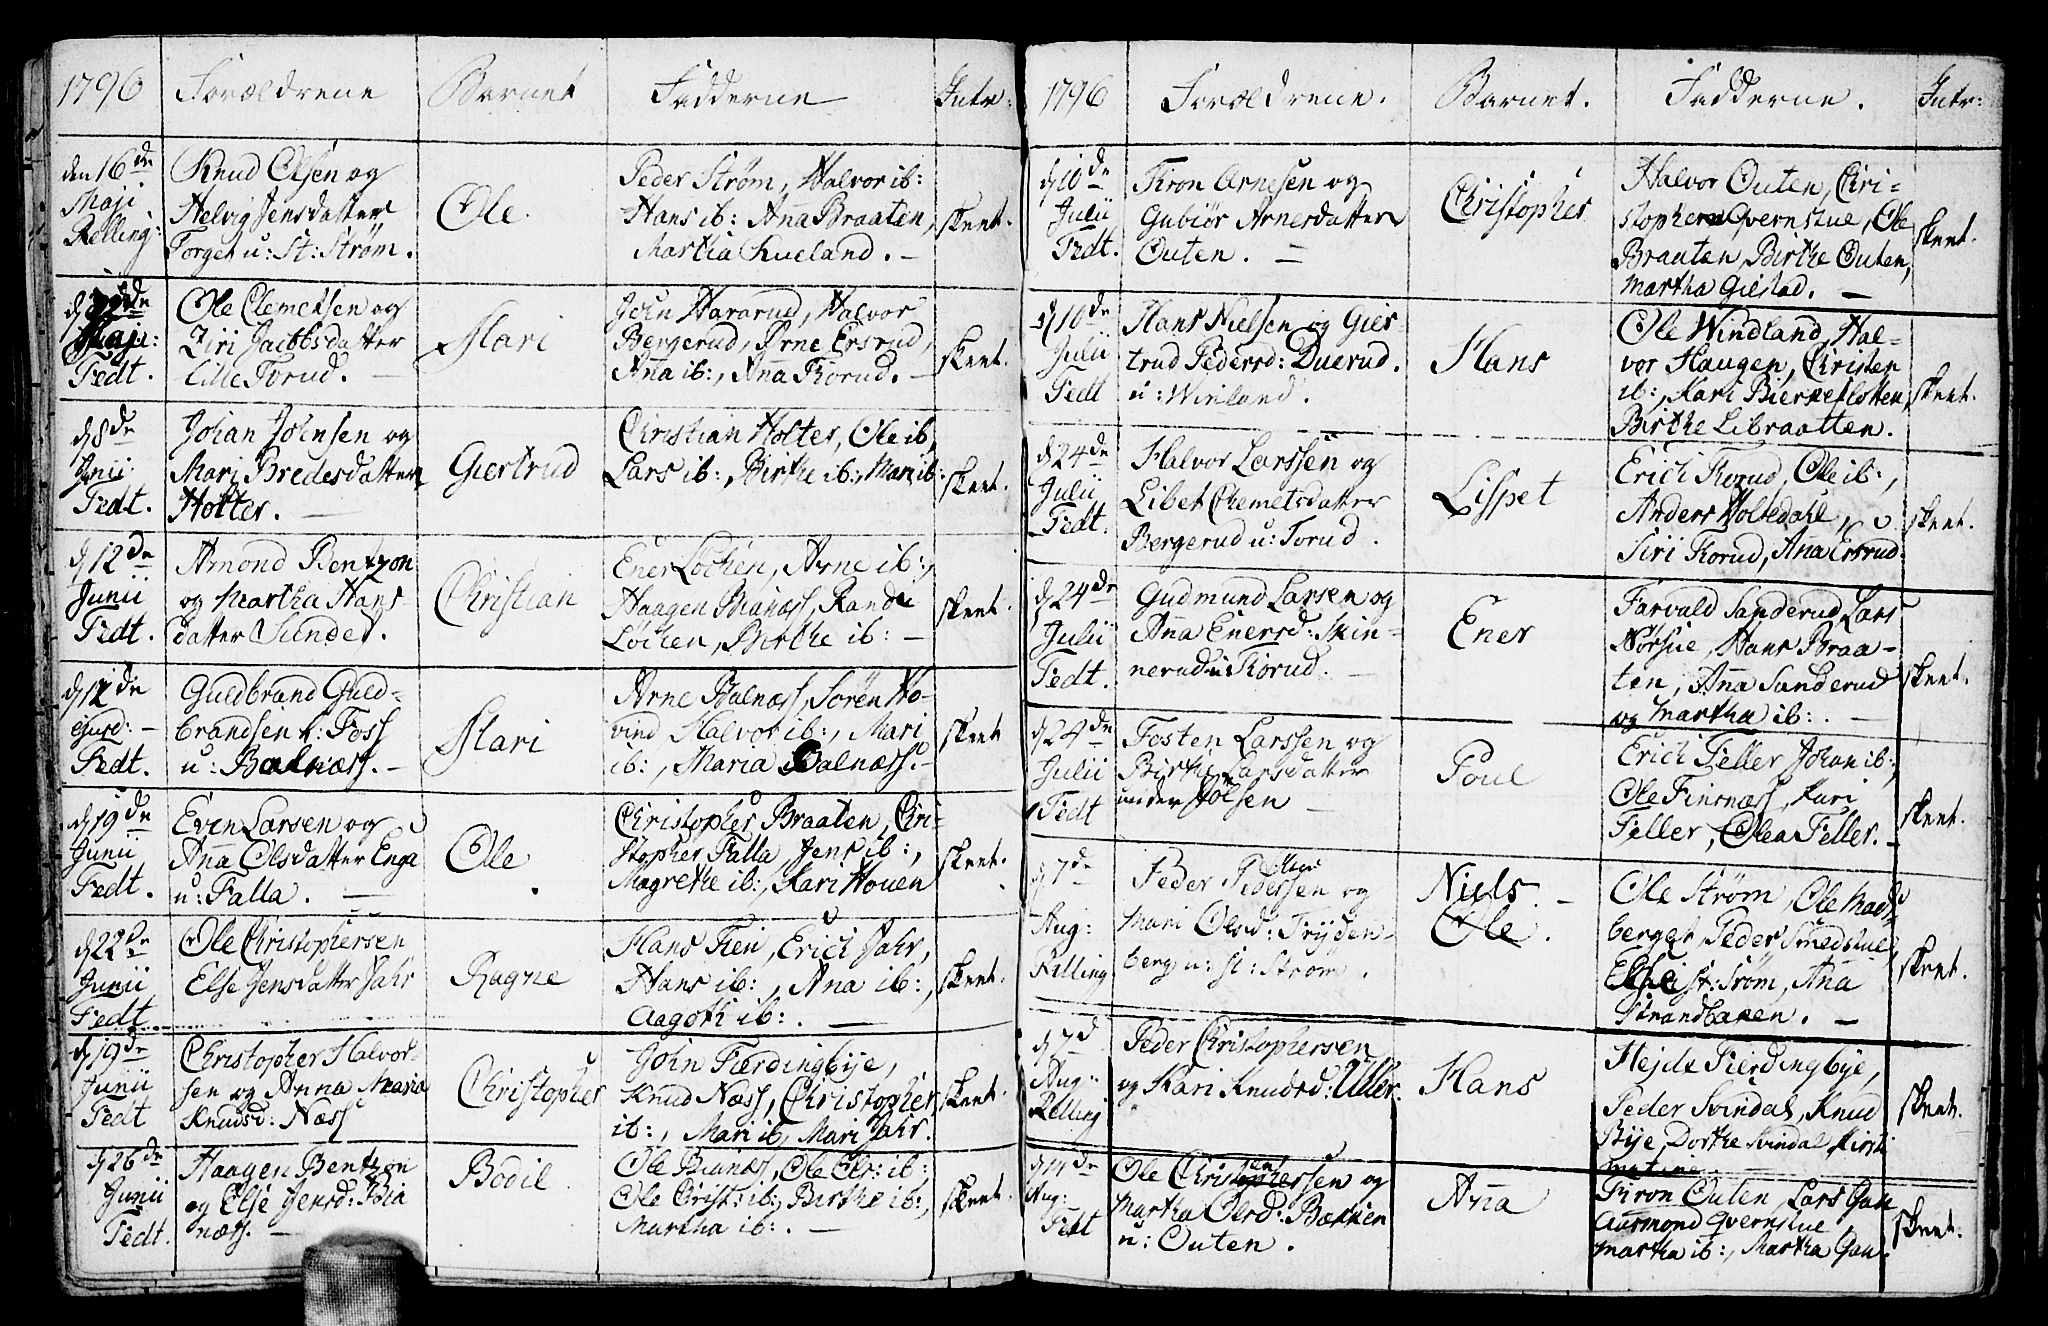 1796 Foræeldrene Barnet Fadderne Intr:
den 16de
Maji
Relling:
Knud Olsen og
Helvig Jensdatter
Torget u: St: Strøm.
Ole.
Peder Strøm, Halvor ib:
Hans ib: Anna Braaten,
Martha Kueland. –
skeet.
Maji:
Fedt.
Ole Clemetsen og
Ziri Jacobsdatter
Lille Torud. –
Mari
John Hararud, Halvor
Bergerud, Arne Ersrud,
Anna ib:, Anna Korud. –
skeet.
d 8de
Junii
Fedt.
Johan Johnsen og
Mari Bredesdatter
Holter. –
Giertrud
Christian Holter, Ole ib,
Lars ib:, Birthe ib:, Mari ib:
skeet.
d 12de
Junii
Fedt.
Amond Bentzon
og Martha Hans
datter Sundet.
Christian
Ener Løchen, Arne ib:,
Haagen Bianæss, Randi
Løchen, Birthe ib: –
skeet.
d 12de
ejusd: –
Fedt.
Guldbrand Guld-
brandsen k: Foss
u: Balnæss. –
Mari
Arne Balnæss, Søren Ho-
vind Halvor ib:, Mari
ib:, Maria Balnæss. –
skeet
d 19de
Junii
Fedt.
Even Larsen og
Anna Olsdatter Enga
u: Falla. –
Ole
Christopher Braaten, Chri-
stopher Falla Jens ib:,
Magrethe ib:, Kari Houen
skeet.
d 22de
Junii
Fedt.
Ole Christophersen
Else Jensdatter Jahr
Ragne
Hans Fien, Erich Jahr,
Hans ib:, Anna ib:,
Aagoth ib:. –
skeet.
d 19de
Junii
Fedt
Christopher Halvor-
sen og Anna Maria
Knudsd: Næss
Christopher
John Fierdingbye,
Knud Næss, Christopher
ib:, Mari ib, Mari Jahr.
skeet.
d 26de
Junii
Fedt.
Haagen Bentzon
og Else Jensd: Bia
næss. –
Bodil
Ole Bianæss, Ole Ols: ib:
Ole Christ: ib:, Birthe ib:,
Martha ib:. –
skeet.
1796 Forældrene. Barnet. Fadderne. Intr:
d 10de
Julii
Fedt.
Tron Arnesen og
Gubiør Arnesdatter
Outen. –
Christopher
Halvor Outen, Chri-
stopher Qvernstue, Ole
Braaten, Birthe Outen,
Martha Gielstad. –
skeet.
d 10de
Julii
Fedt
Hans Nielsen og Gier-
trud Pedersd: Duerud.
u: Winland.
Hans
Ole Windland, Hal-
vor Haugen, Christen
ib:, Kari Bierkeslotten,
Birthe Libraatten.
skeet.
d 24de
Julii
Fedt.
Halvor Larssen og
Libet Clemetsdatter
Bergerud u: Torud.
Lispet
Erich Korud, Ole ib:,
Anders Holtedahl,
Siri Korud, Anna Ersrud.
skeet.
d 24de
Julii
Fedt.
Gudmund Larsen og
Anna Enersd: Skin-
nerud u: Korud. –
Ener
Tarvald Sanderud, Lars
Norstue, Hans Braa-
ten, Anna Sanderud
og Martha ib:. –
skeet.
d 24de
Julii
Fedt
Tosten Larssen og
Birthe Larsdatter
under Stølsen –
Poul
Erich Feller Johan ib:,
Ole Finsnæss, Kari
Feller, Olea Feller. –
skeet.
d 7de
Aug:
Relling
Peder Pedersen og
Mari Olsd: Fryden-
berg u: st: Strøm.
Niels. –
Ole.
Ole Strøm, Ole Mads
berget Peder Smedstue,
Else st: Strøm, Anna
Strandbaken. –
skeet.
d 7d
Aug:
Relling
Peder Christophersen
og Kari Knudsd: Uller.
Hans
Hejde Fierdingbye,
Peder Svindal, Knud
Bye, Dorthe Svindal Kirsti
skeet.
d 14de
Aug:
Fedt
Ole Christophersen og
Martha Olsd: Bækken
u: Outen.
Anna
Tron Outen, Lars Gan
Aasmond Qvernstue
Martha ib:, Martha Gan.
skeet.